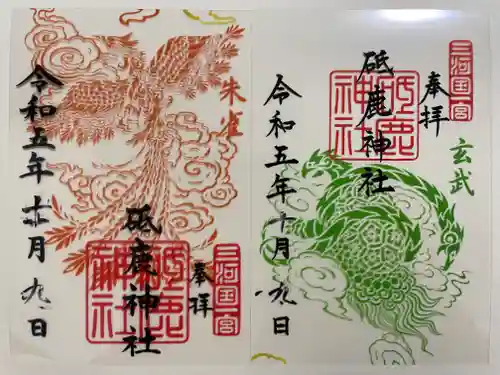 三河国一宮
奉拝
玄武
砥鹿神社
砥鹿神社
令和五年十月九日
朱雀
奉拝
三河国一宮
砥鹿神社
砥鹿神社
令和五年
月九日